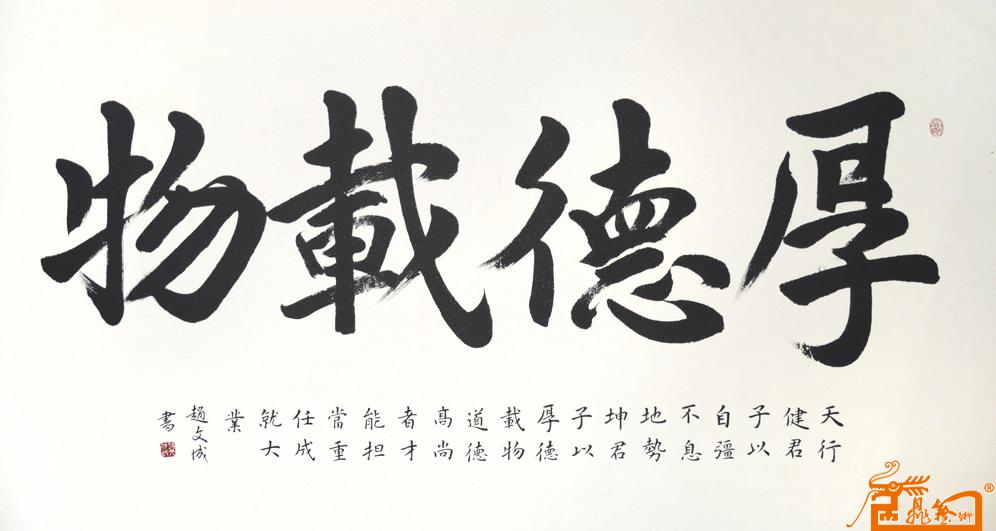 厚德載物
天行
健君
子以
自彊
不息
地勢
坤君
子以
厚德
載物
道德
高尚
者才
能担
當重
任成
就大
業
趙文成
書